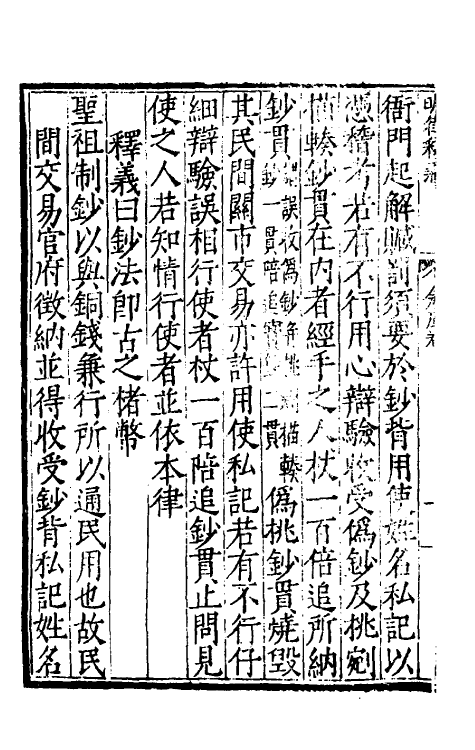 衙門起解贓罰須要於鈔背用使姓名私記以
憑稽考若有不行用心辯驗收受偽鈔及挑剜
描輳鈔貫在內者經手之人杖一百倍追所納
鈔貫
誤收偽鈔并挑剜描輳
鈔一貫陪追寶鈔二貫
偽挑鈔貫燒毀
其民間關市交易亦許用使私記若有不行仔
細辯驗誤相行使者杖一百陪追鈔貫止問見
使之人若知情行使者並依本律
釋義曰鈔法卽古之楮幣
聖祖制鈔以與銅錢兼行所以通民用也故民
間交易官府徵納並得收受鈔背私記姓名